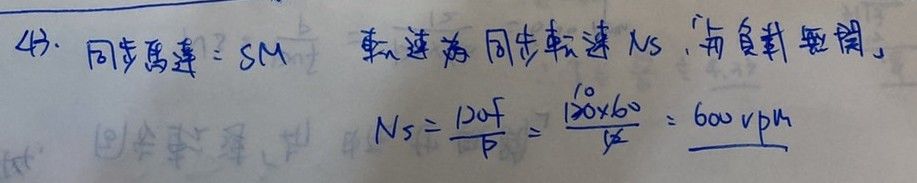 43. 同步馬達 = SM 転速為 同步転速 Ns, 「與負載無関」
Ns = 120f/P = 120×60/12 = 600 rpm